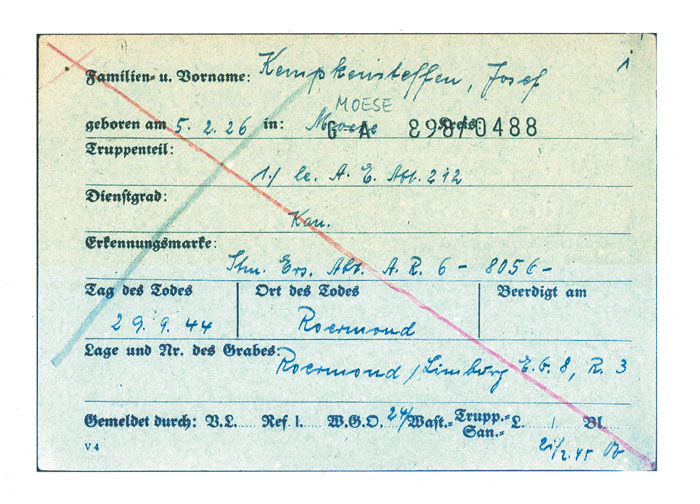 Familien- u. Vorname: Kempkensteffen, Josef 1
MOESE
geboren am 5. 2. 26 in: Moese Kreis
G A 898/0488
Truppenteil: 1./ le. A. E. Abt. 212
Dienstgrad: Kan.
Erkennungsmarke: Stm. Ers. Abt. A. R. 6 - 8056 -
Tag des Todes Ort des Todes Beerdigt am
29. 9. 44 Roermond
Lage und Nr. des Grabes: Roermond / Limburg E. G. 8, R. 3
Gemeldet durch: V.L. Ref. I. W.G.O. 24/ Wast.- Trupp.- San.- L. / Bl.
21/2. 45
V 4